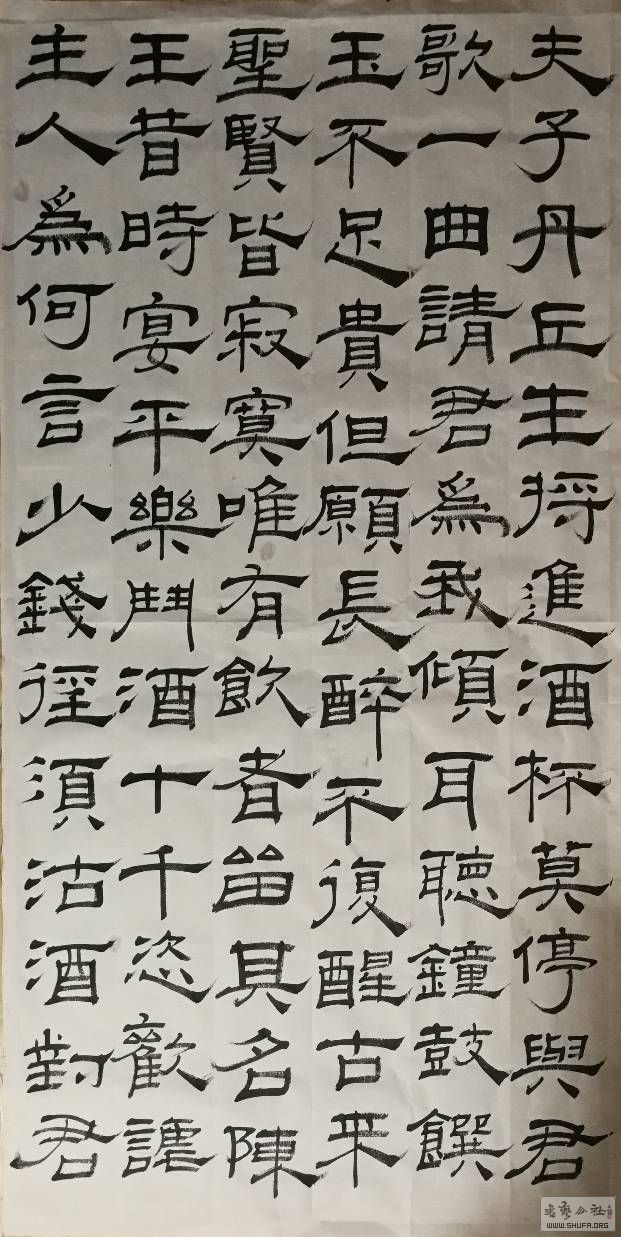 夫子丹丘生將進酒杯莫停與君
歌一曲請君為我傾耳聽鐘鼓饌
玉不足貴但願長醉不復醒古來
聖賢皆寂寞唯有飲者留其名陳
王昔時宴平樂斗酒十千恣歡謔
主人為何言少錢徑須沽酒對君
WWW.SHUFA.ORG